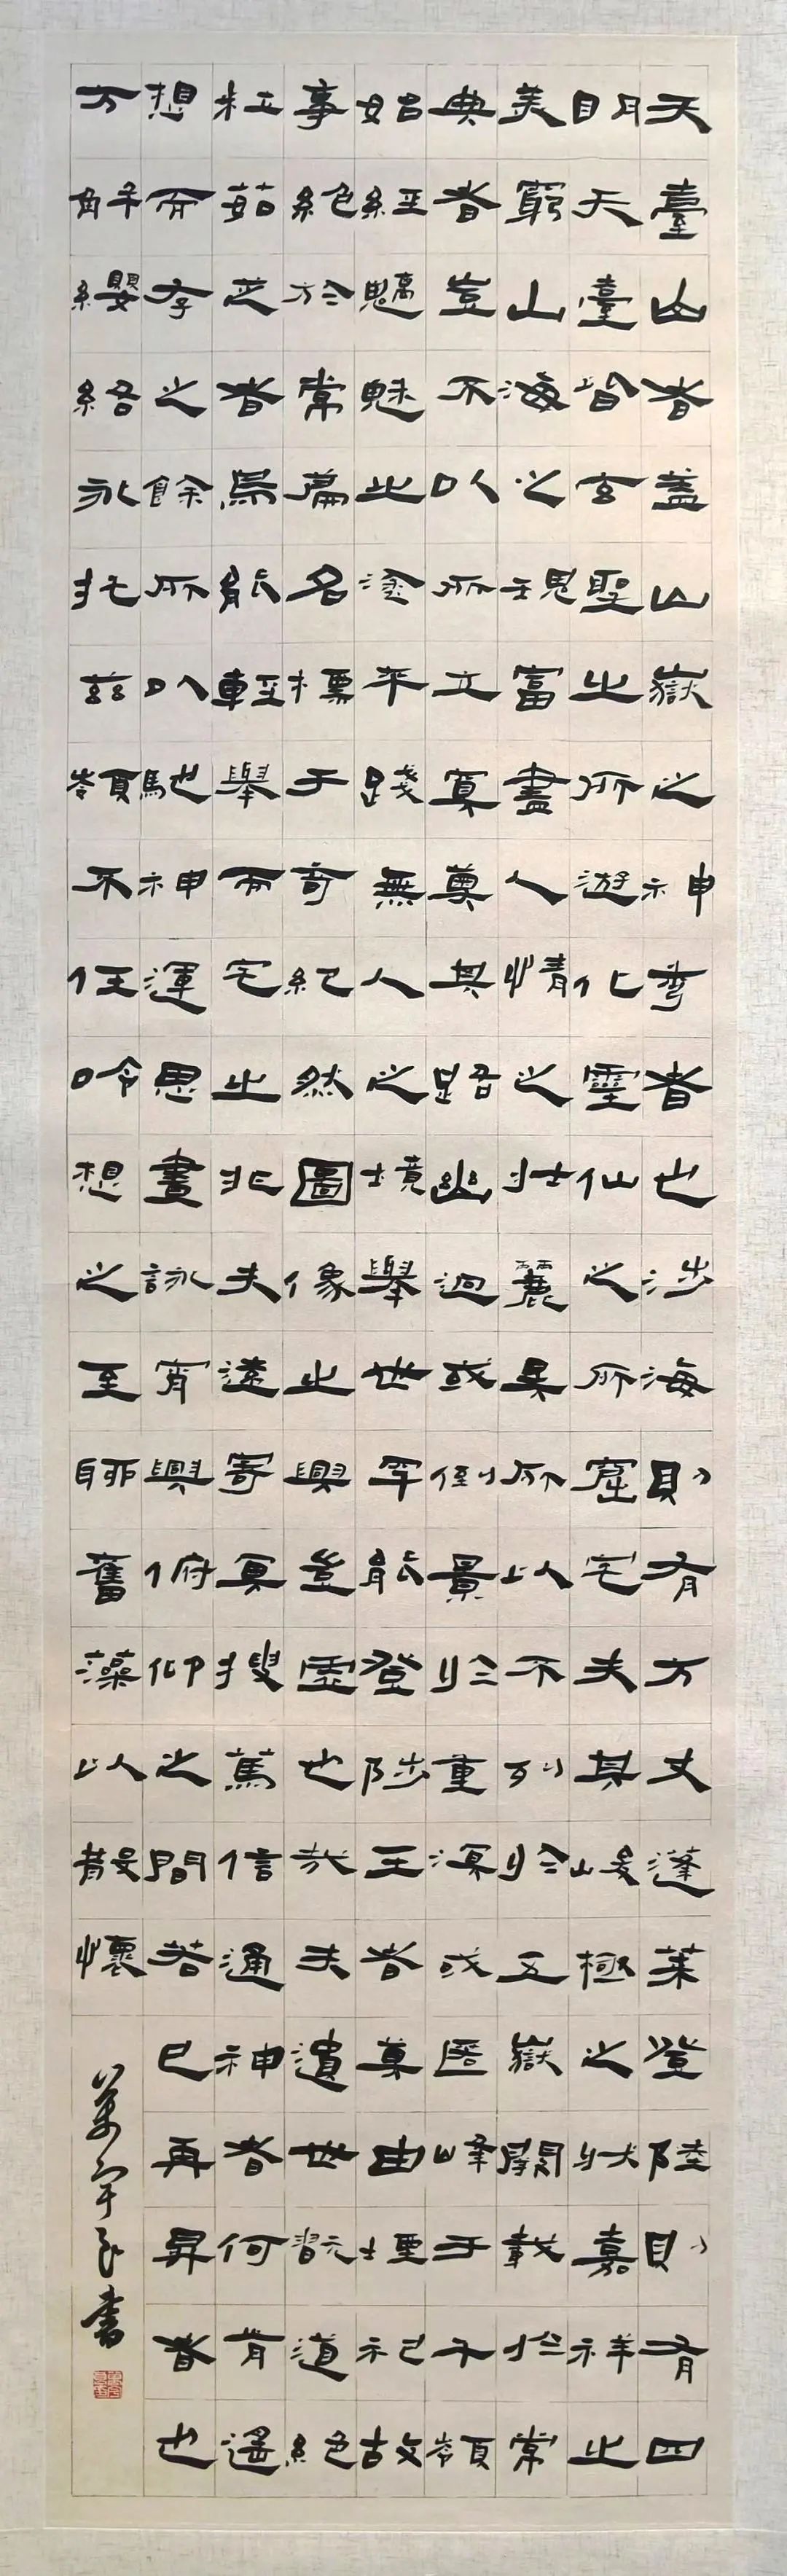 天臺山者盖山嶽之神秀者也涉海則有方丈蓬莱登陸則有四
明天臺皆玄聖之所遊化靈仙之所窟宅夫其峻極之狀嘉祥之
美窮山海之瑰富盡人情之壯麗矣所以不列於五嶽闕載於常
典者豈不以所立冥奥其路幽迥或倒景於重溟或匿峰于千嶺
始經魑魅之塗卒踐無人之境舉世罕能登陟王者莫由堙祀故
事絕於常篇名標于奇紀然圖像之興豈虛也哉夫遺世翫道絕
粒茹芝者焉能輕舉而宅之非夫遠寄冥搜篤信通神者何肯遙
想而存之餘所以馳神運思晝詠宵興俯仰之間若已再昇者也
方解纓絡永托兹嶺不任吟想之至聊奮藻以散懷